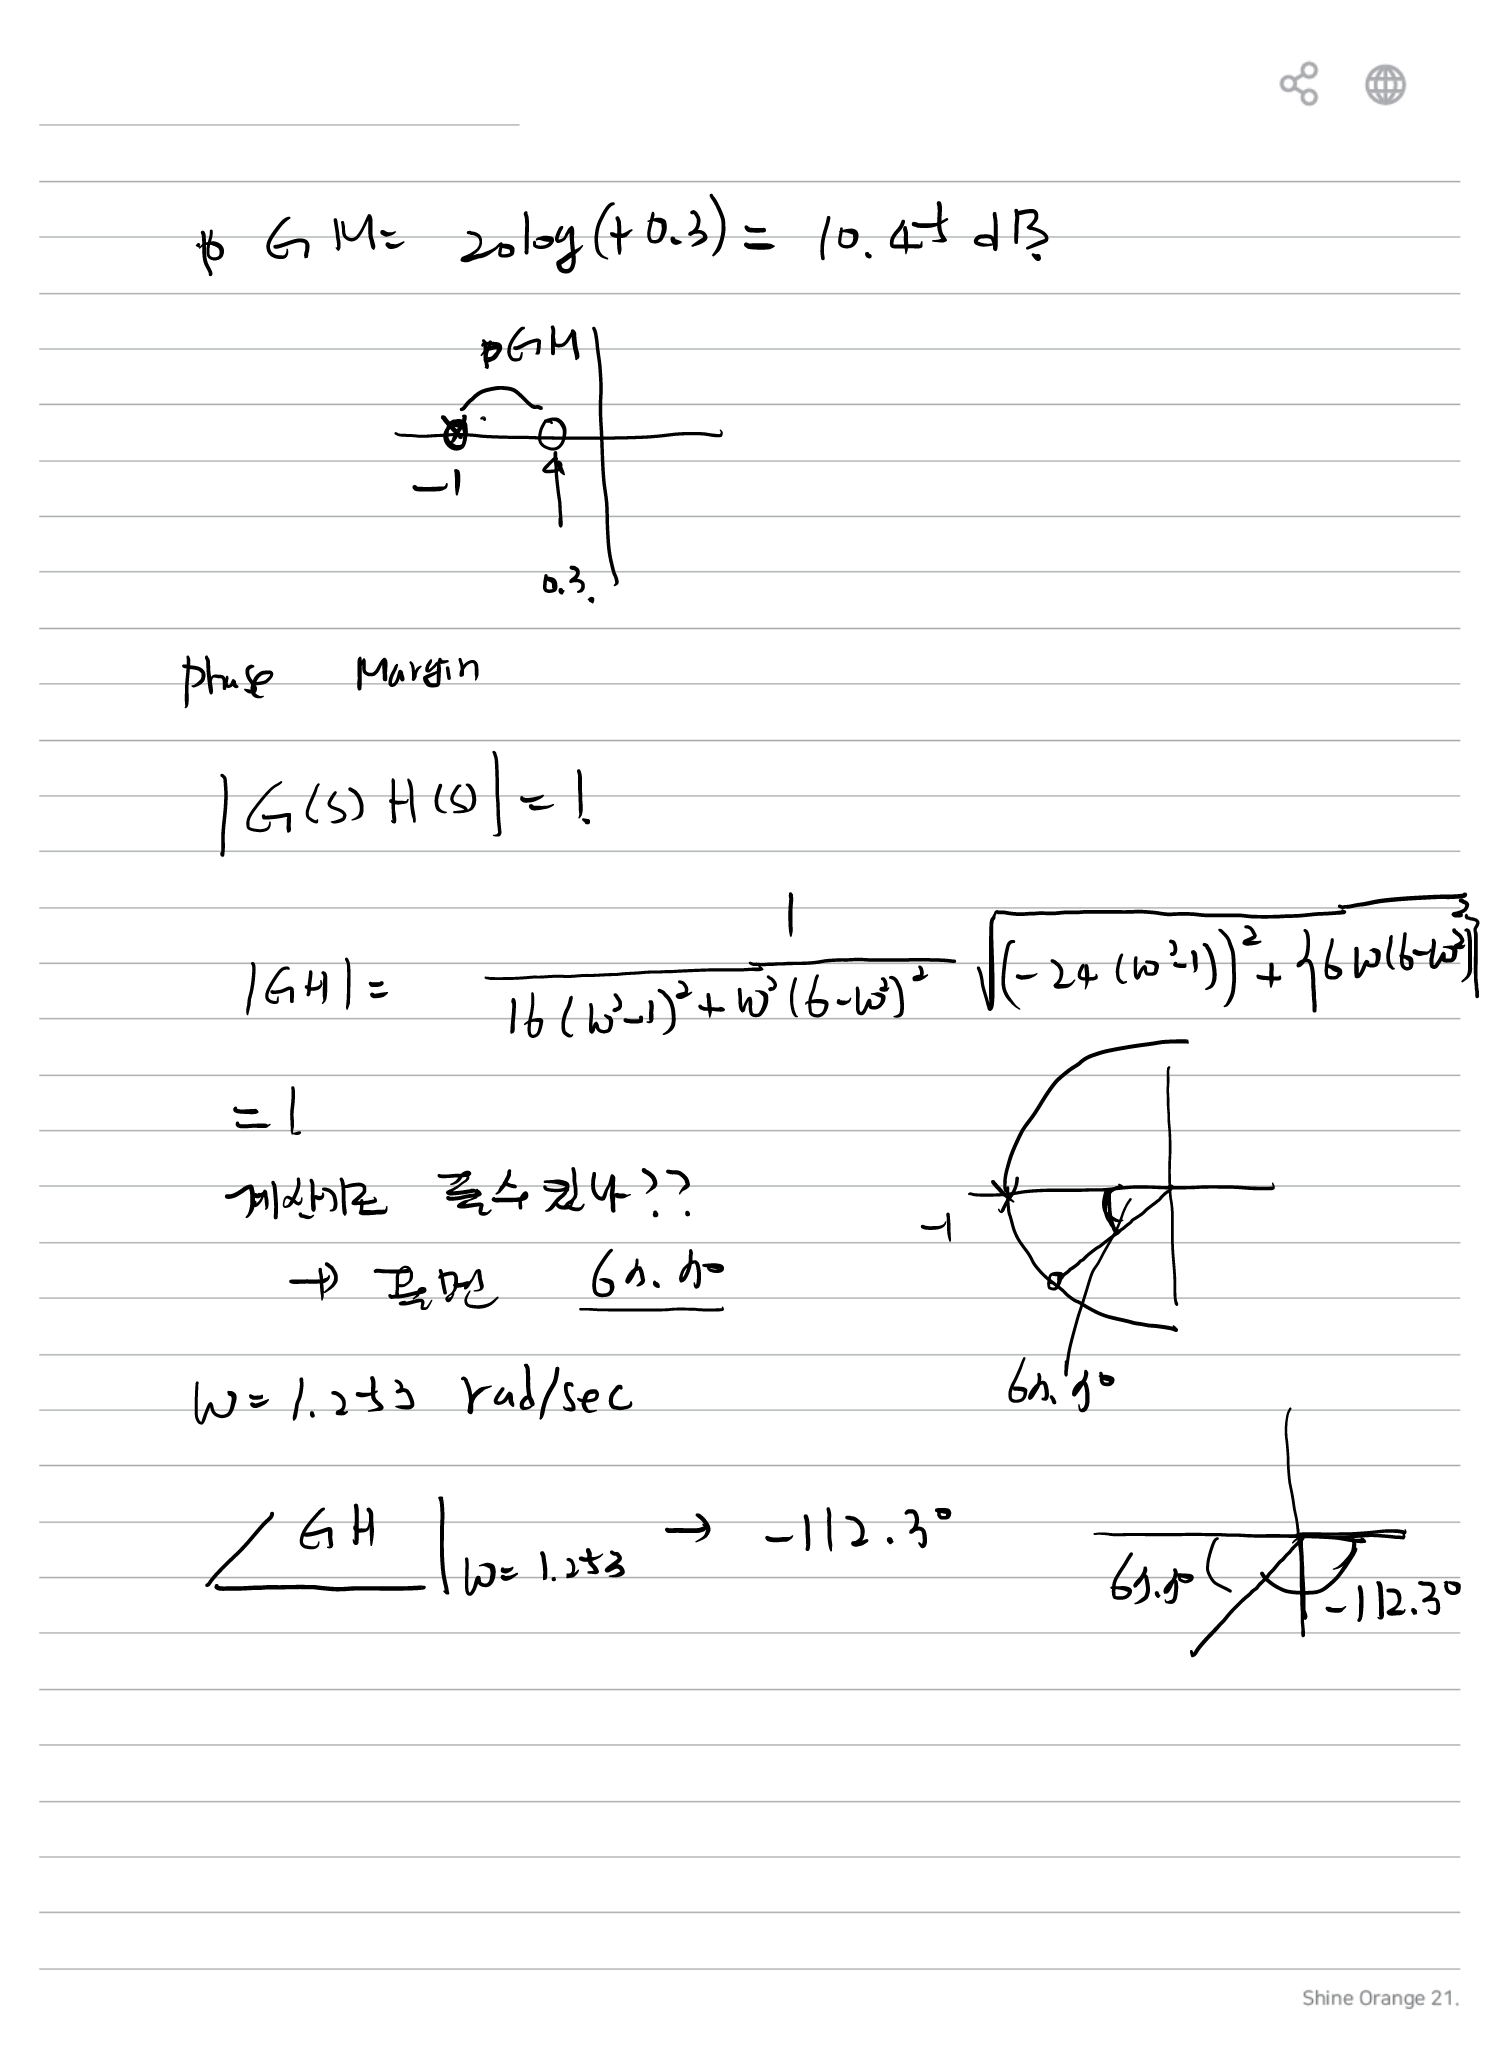 GM = 20log(+0.3) = 10.45 dB.
GM
-1
0.3.
phase Margin
|G(s)H(s)| = 1.
|GH| = 1 / 16(w²-1)² + w²(6-w²)² √(-24(w²-1))² + {6w(6-w²)}²
= 1
계산기로 풀수 있나??
-1
→ 풀면 67.7°
67.7°
w = 1.253 rad/sec
∠GH |w = 1.253 → -112.3°
67.7°
-112.3°
Shine Orange 21.